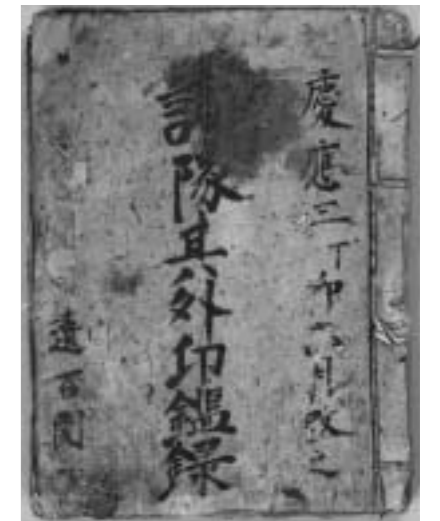 慶應三丁卯六月改之
諸隊其外印鑑録